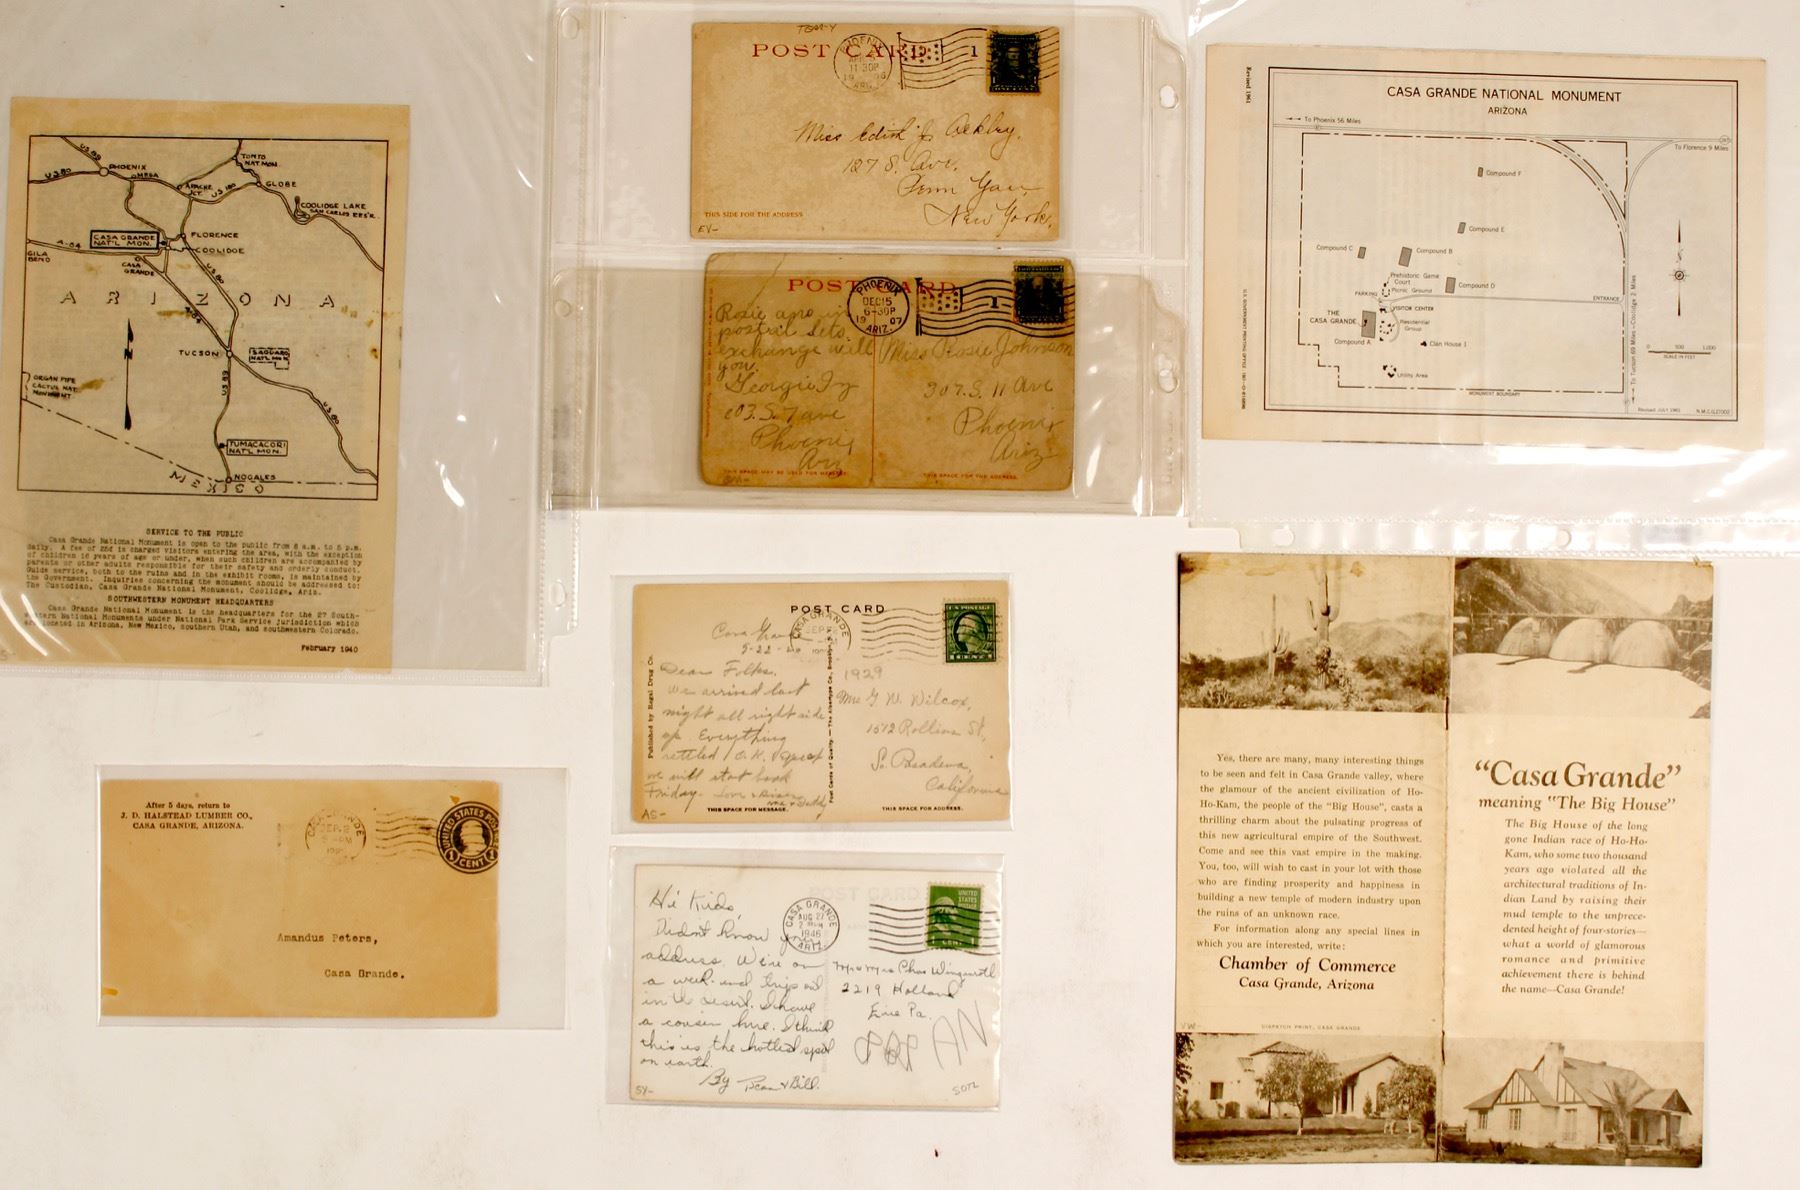 US 89
PHOENIX
MESA
US 80
TONTO
NAT. MON.
APACHE
JCT.
US 180
GLOBE
COOLIDGE LAKE
SAN CARLOS RES'R.
CASA GRANDE
NAT'L MON.
FLORENCE
COOLIDGE
A-84
GILA
BEND
CASA
GRANDE
US 80
ARIZONA
A-84
N
TUCSON
SAGUARO
NAT'L MON.
ORGAN PIPE
CACTUS NAT.
MONUMENT
US 89
US 80
TUMACACORI
NAT'L MON.
NOGALES
MEXICO
SERVICE TO THE PUBLIC
Casa Grande National Monument is open to the public from 8 a.m. to 5 p.m.
daily. A fee of 25¢ is charged visitors entering the area, with the exception
of children 16 years of age or under, when such children are accompanied by
parents or other adults responsible for their safety and orderly conduct.
Guide service, both to the ruins and in the exhibit rooms, is maintained by
the Government. Inquiries concerning the monument should be addressed to:
The Custodian, Casa Grande National Monument, Coolidge, Ariz.
SOUTHWESTERN MONUMENT HEADQUARTERS
Casa Grande National Monument is the headquarters for the 27 South-
western National Monuments under National Park Service jurisdiction which
are located in Arizona, New Mexico, southern Utah, and southwestern Colorado.
February 1940
POST CARD
PHOENIX
APR 5
11 30P
1906
ARIZ.
1
Miss Edith J. Ackley.
127 S. Ave.
Penn Yan
New York.
THIS SIDE FOR THE ADDRESS
EV-
POST CARD
PHOENIX
DEC 15
6-30P
1907
ARIZ.
1
Rosie ano in
postal lets.
exchange will
you.
Georgie Fry
803. S. 7 ave
Phoenix
Ariz
Miss Rosie Johnson
307. S. 11 Ave
Phoenix
Ariz
THIS SPACE MAY BE USED FOR MESSAGE
THIS SPACE FOR THE ADDRESS.
Revised 1961
CASA GRANDE NATIONAL MONUMENT
ARIZONA
To Phoenix 56 Miles
To Florence 9 Miles
Compound F
Compound E
Compound C
Compound B
Prehistoric Game
Court
Compound D
PARKING
Picnic Ground
ENTRANCE
VISITOR CENTER
THE
CASA GRANDE
Residential
Group
Compound A
Clan House 1
Utility Area
MONUMENT BOUNDARY
0 500 1,000
SCALE IN FEET
To Tucson 69 Miles—Coolidge 2 Miles
Revised JULY 1961
POST CARD
CASA GRANDE
SEP 2
Casa Grande
9-22-29
Dear Folks.
We arrived last
night all right side
up. Everything
settled O.K. Expect
we will start back
Friday. Love
1929
Mrs G. W. Wilcox,
1512 Rollins St.,
So. Pasadena,
California
Published by Regal Drug Co.
Post Cards of Quality. — The Albertype Co., Brooklyn, N.Y.
U.S. POSTAGE
1 CENT 1
THIS SPACE FOR MESSAGE.
THIS SPACE FOR ADDRESS.
AS-
After 5 days, return to
J. D. HALSTEAD LUMBER CO.,
CASA GRANDE, ARIZONA.
CASA GRANDE
SEP 2
5-PM
UNITED STATES POSTAGE
1 CENT 1
Amandus Peters,
Casa Grande.
POST CARD
CASA GRANDE
AUG 27
1946
ARIZ.
UNITED
STATES
POSTAGE
1 CENT
Hi Kids,
Didn't know your
address. We're on
a week end trips out
in the desert. I have
a cousin here. I think
this is the hottest spot
on earth.
By Bean & Bill.
Mr & Mrs Chas Wingerotl
2219 Holland
Erie Pa.
SY-
Yes, there are many, many interesting things
to be seen and felt in Casa Grande valley, where
the glamour of the ancient civilization of Ho-
Ho-Kam, the people of the "Big House", casts a
thrilling charm about the pulsating progress of
this new agricultural empire of the Southwest.
Come and see this vast empire in the making.
You, too, will wish to cast in your lot with those
who are finding prosperity and happiness in
building a new temple of modern industry upon
the ruins of an unknown race.
For information along any special lines in
which you are interested, write:
Chamber of Commerce
Casa Grande, Arizona
VW-
DISPATCH PRINT, CASA GRANDE
"Casa Grande"
meaning "The Big House"
The Big House of the long
gone Indian race of Ho-Ho-
Kam, who some two thousand
years ago violated all the
architectural traditions of In-
dian Land by raising their
mud temple to the unprece-
dented height of four-stories—
what a world of glamorous
romance and primitive
achievement there is behind
the name—Casa Grande!